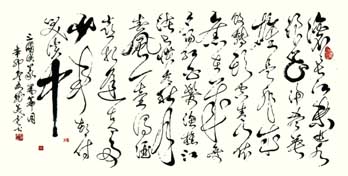 滚滚长江东逝水
浪花淘尽英
雄是非成
败转头空青
山依旧在几度
夕阳红白发渔樵江
渚上惯看秋月春
風一壶浊酒
喜相逢古今多
少事都付
笑谈中
三国演义卷首词
辛卯